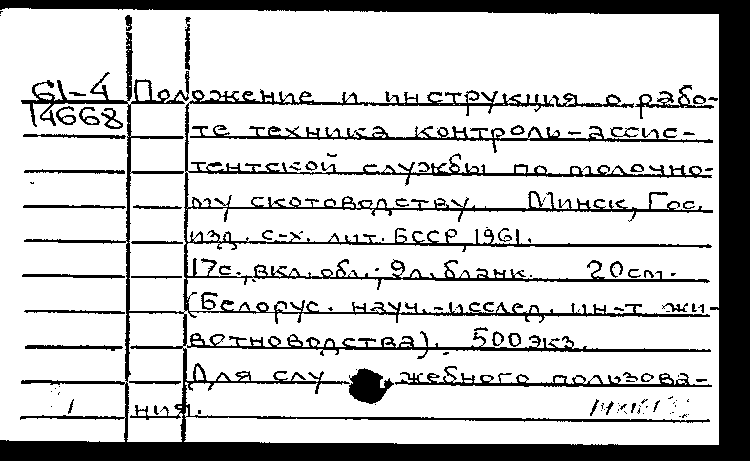 61-4 Положение и инструкция о рабо-
14668
те техника контроль-ассис-
тентской службы по молочно-
му скотоводству. Минск, Гос.
изд. с-х. лит. БССР, 1961.
17с., вкл. обл.; 9л. бланк. 20см.
(Белорус. науч.-исслед. ин-т жи-
вотноводства). 500 экз.
Для служебного пользова-
1 ния.